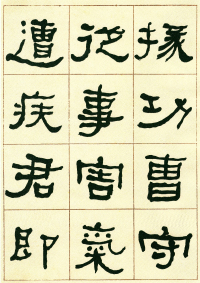 掾功曹守
從事害氣
遭疾君即